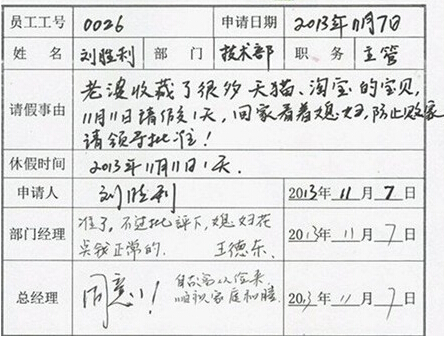 员工工号 0026 申请日期 2013年11月7日
姓名 刘胜利 部门 技术部 职务 主管
请假事由 老婆收藏了很多天猫、淘宝的宝贝,
11月11日请假1天,回家看着媳妇,防止败家
请领导批准!
休假时间 2013年11月11日1天.
申请人 刘胜利 2013年11月7日
部门经理 准了,不过批评下,媳妇花
点钱正常的. 王德东. 2013年11月7日
总经理 同意!! 自古富从俭来,
顺祝家庭和睦 2013年11月7日